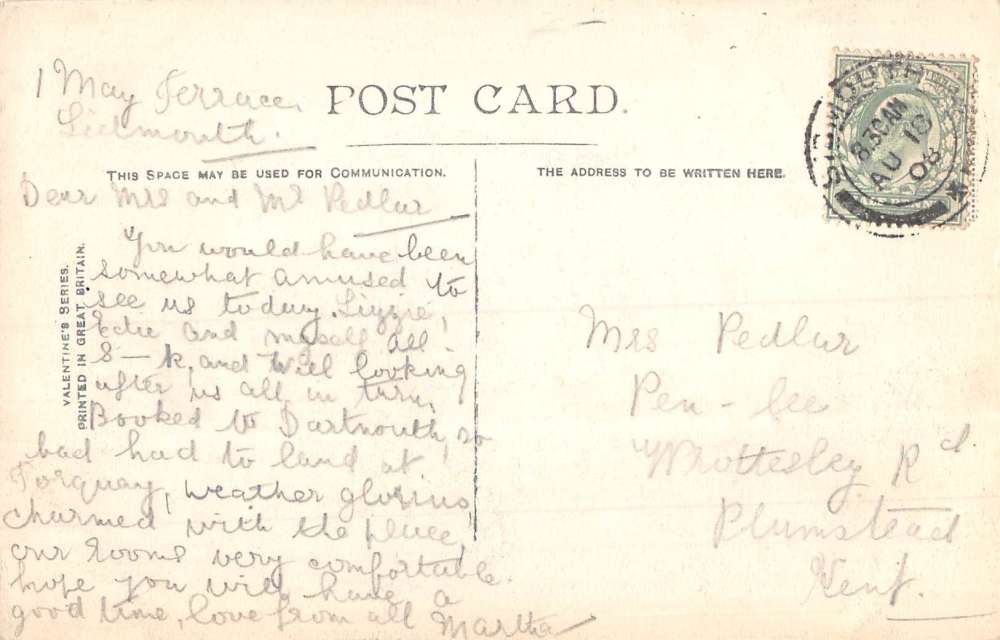 1 May Terrace,
Sidmouth.
POST CARD.
THIS SPACE MAY BE USED FOR COMMUNICATION.
THE ADDRESS TO BE WRITTEN HERE.
VALENTINE'S SERIES.
PRINTED IN GREAT BRITAIN.
Dear Mrs and Mr Pedlur
You would have been
somewhat amused to
see us today. Lizzie,
Edie and myself all
S—k, and Will looking
after us all in turn,
Booked to Dartmouth, so
bad had to land at
Torquay, weather glorius
charmed with the place,
our rooms very comfortable.
hope you will have a
good time, love from all Martha
Mrs Pedlur
Pen-lee
Wrottesley Rd.
Plumstead
Kent.
SIDMOUTH
8.30AM
AU 18
08